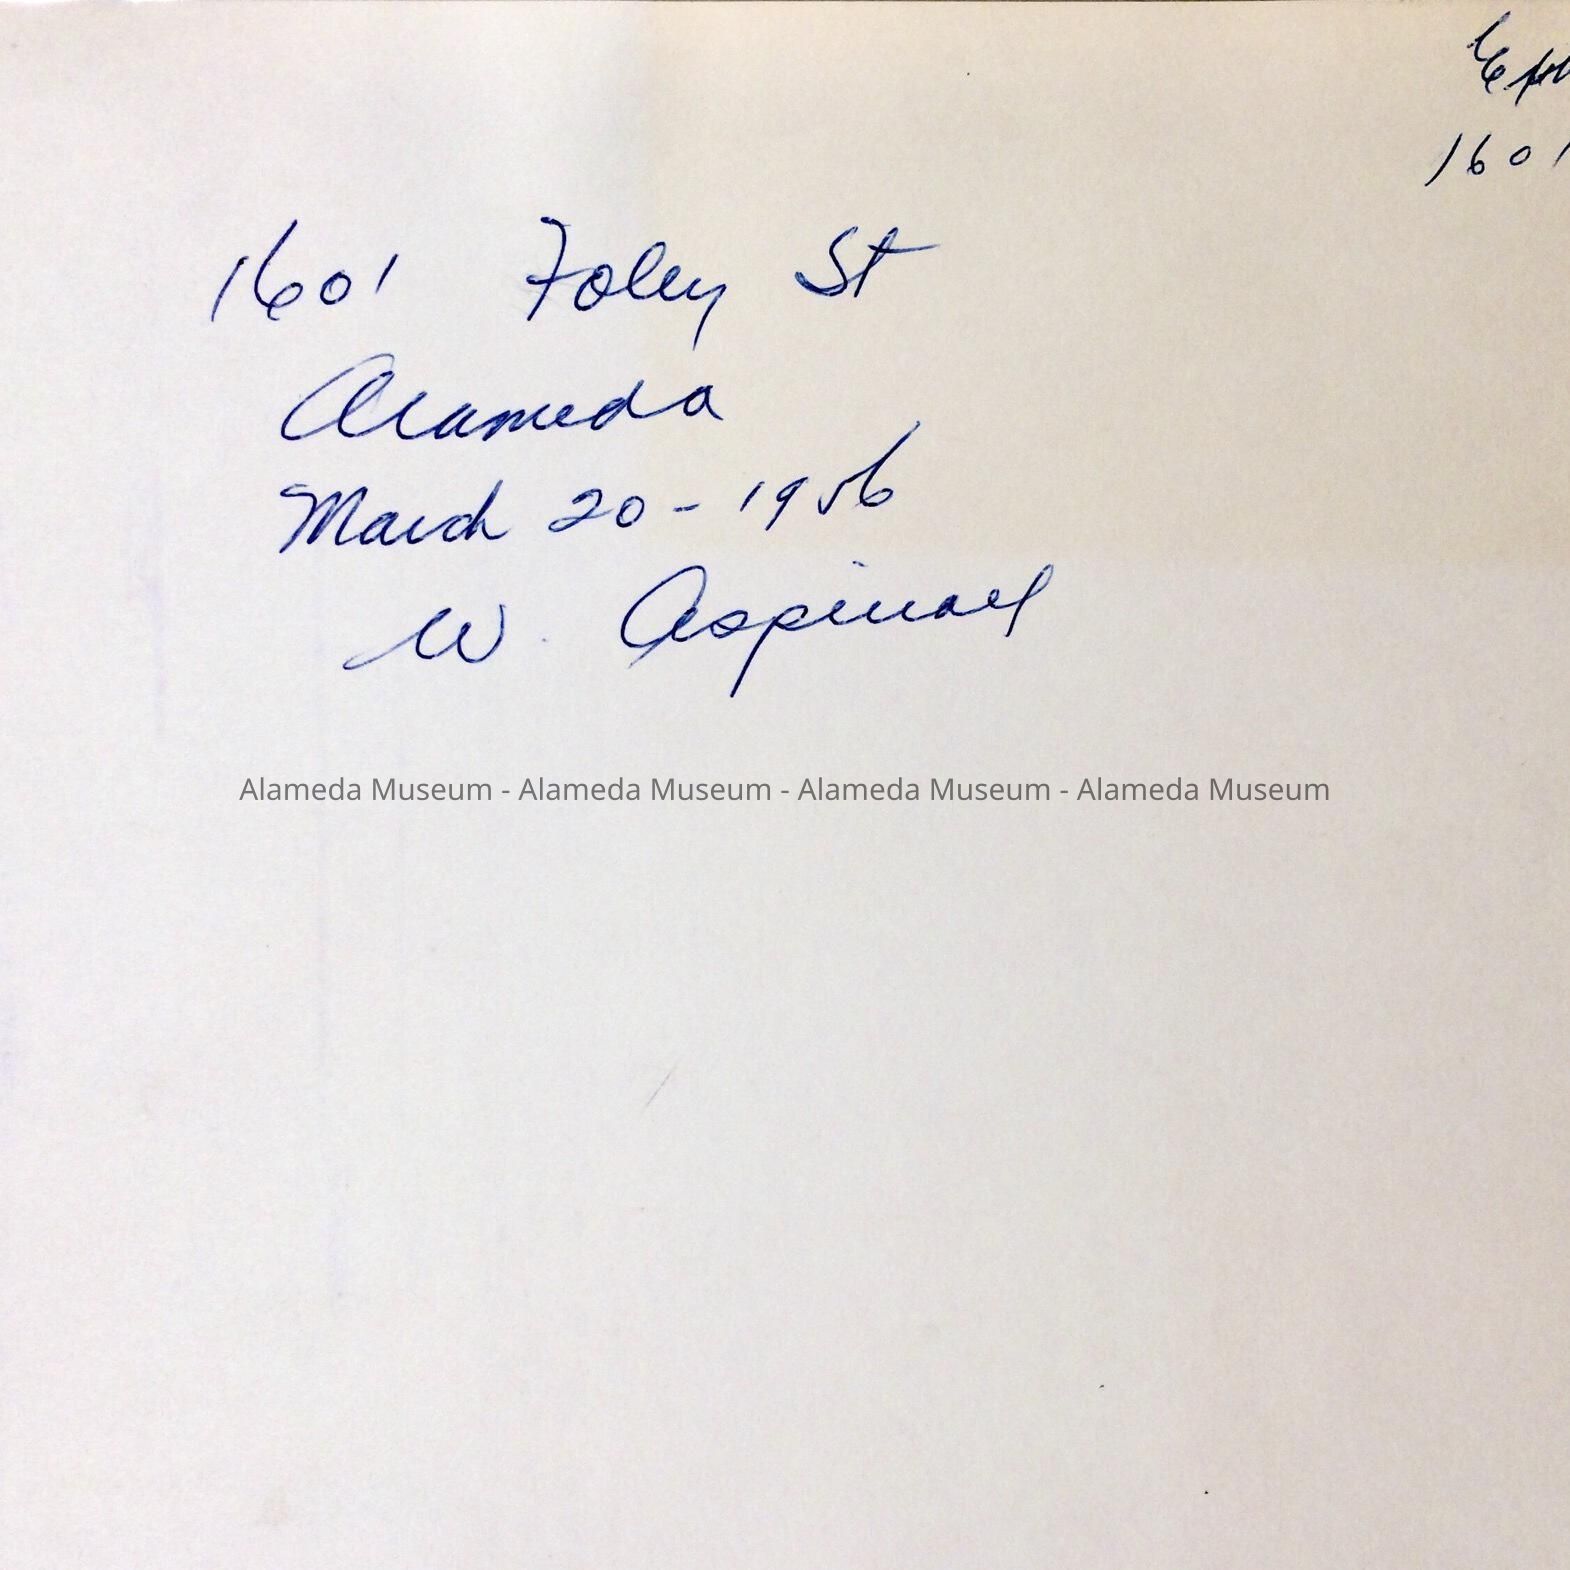 1601
1601 Foley St
Alameda
March 20 - 1956
W. Aspinall
Alameda Museum - Alameda Museum - Alameda Museum - Alameda Museum